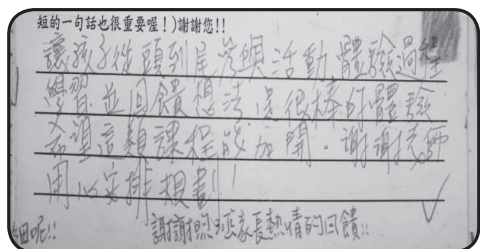 短的一句話也很重要喔！）謝謝您!!
讓孩子從頭到尾參與活動，體驗過程
學習並回饋想法，是很棒的體驗
希望這類課程能加開。謝謝老師
用心安排規劃!
細呢!! 謝謝 家長熱情的回饋!!